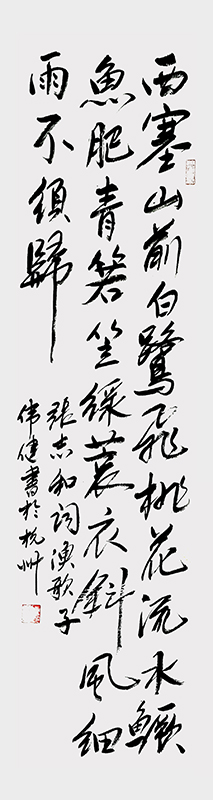 西塞山前白鷺飛桃花流水鱖
魚肥青箬笠綠蓑衣斜風細
雨不須歸
張志和詞漁歌子
伟健書於杭州